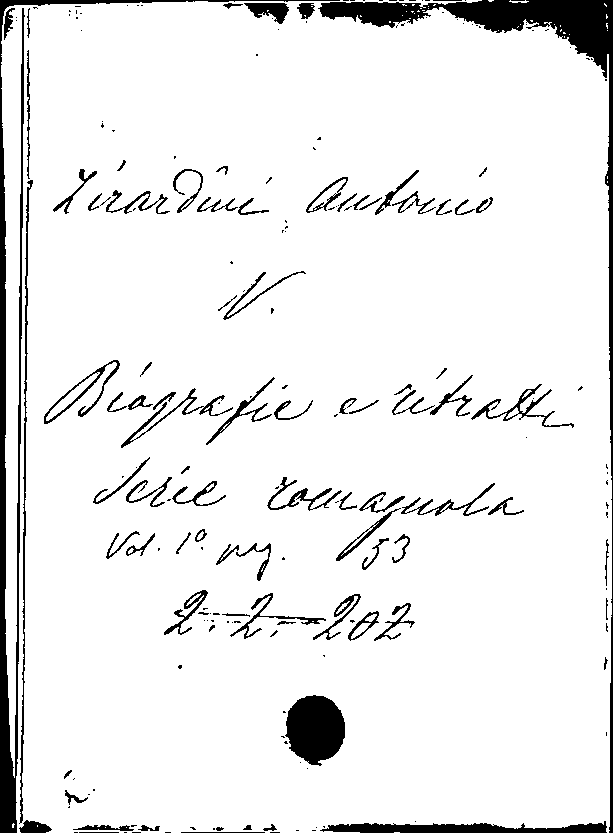 Zirardini Antonio
V.
Biografie e ritratti
serie romagnola
Vol. 1º. pag. 53
2. 2. 202